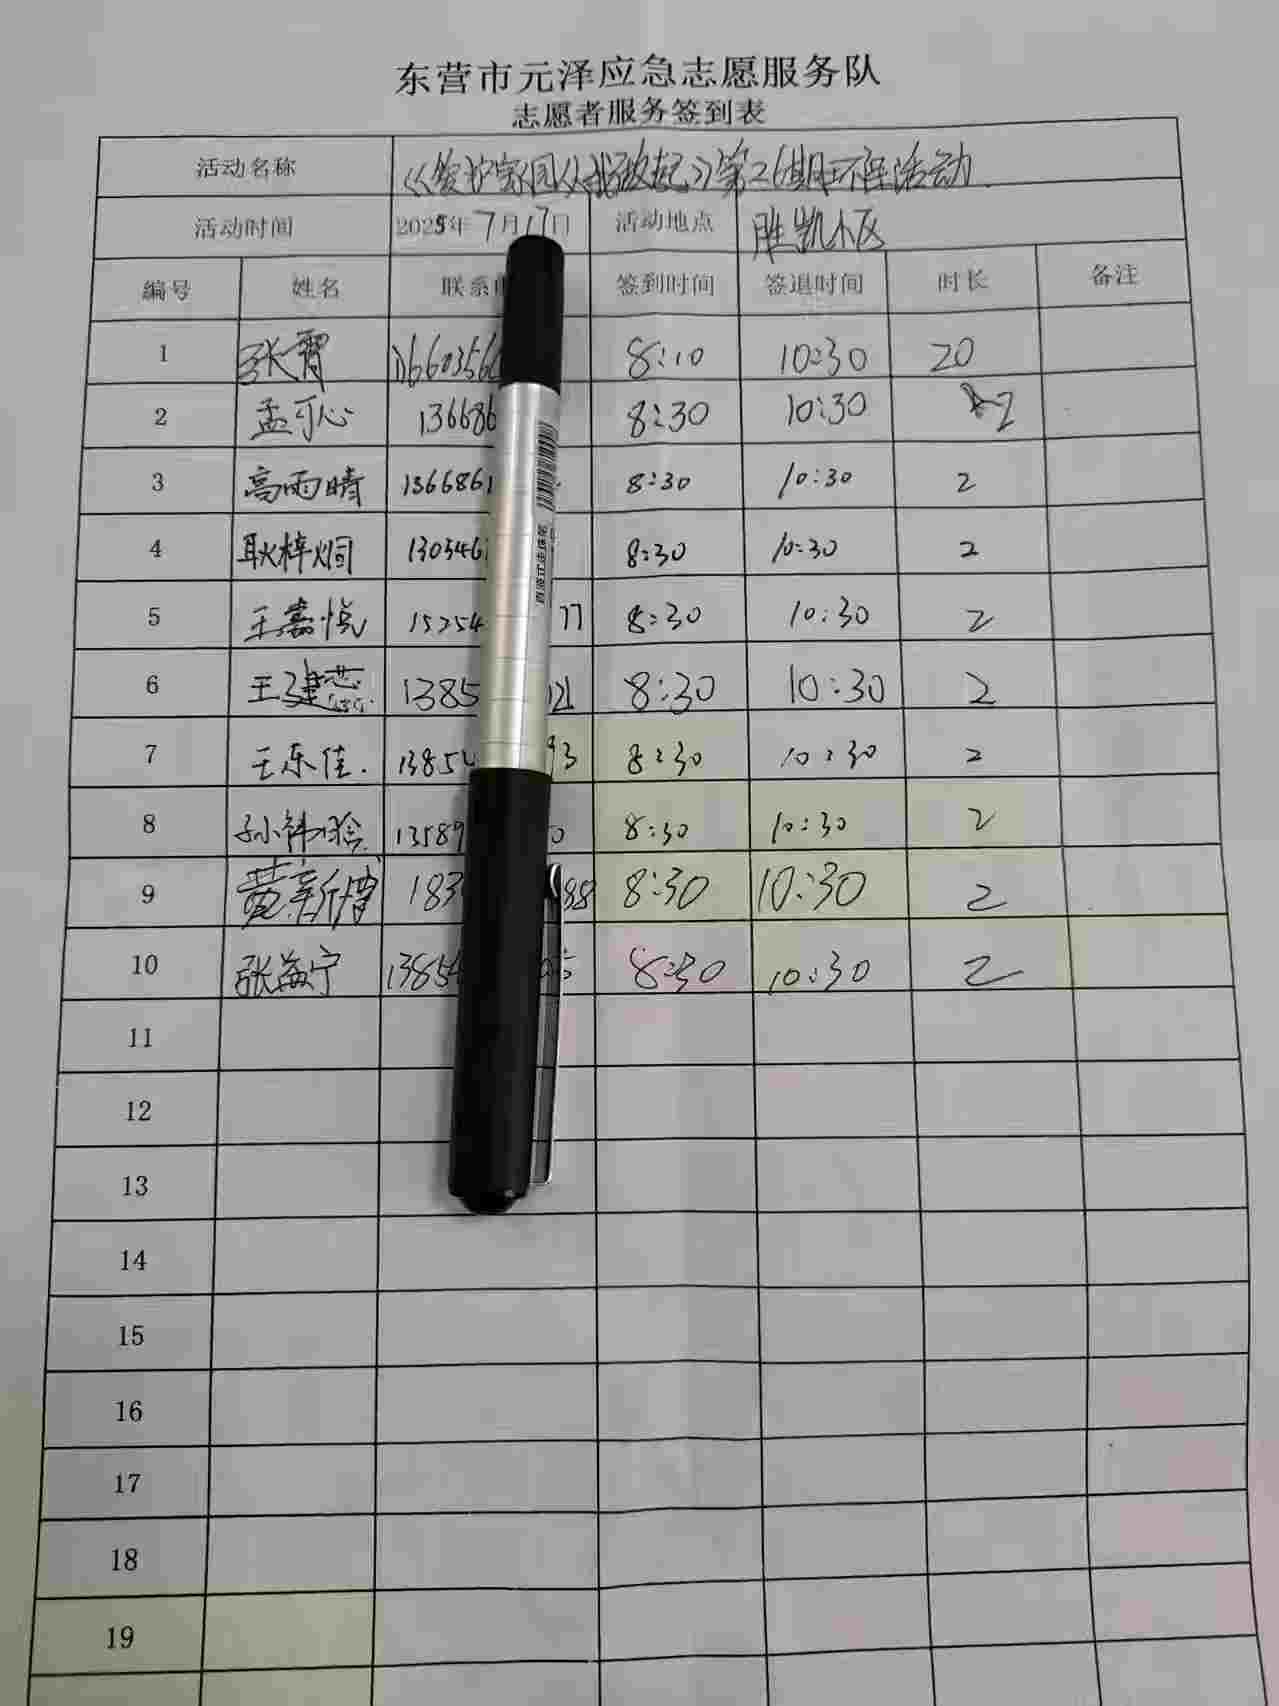 东营市元泽应急志愿服务队
志愿者服务签到表
活动名称 《爱护家园从我做起》第26期环保活动
活动时间 2025年7月17日 活动地点 胜凯小区
编号 姓名 联系电 签到时间 签退时间 时长 备注
1 张霄 8:10 10:30 20
2 孟可心 136686 8:30 10:30 2
3 高雨晴 1366861 8:30 10:30 2
4 耿梓烔 130346 8:30 10:30 2
5 王嘉悦 15254 77 8:30 10:30 2
6 王建芯 1385 21 8:30 10:30 2
7 王乐佳 1385 93 8:30 10:30 2
8 13589 0 8:30 10:30 2
9 黄新倩 183 88 8:30 10:30 2
10 张海宁 1385 05 8:30 10:30 2
11
12
13
14
15
16
17
18
19